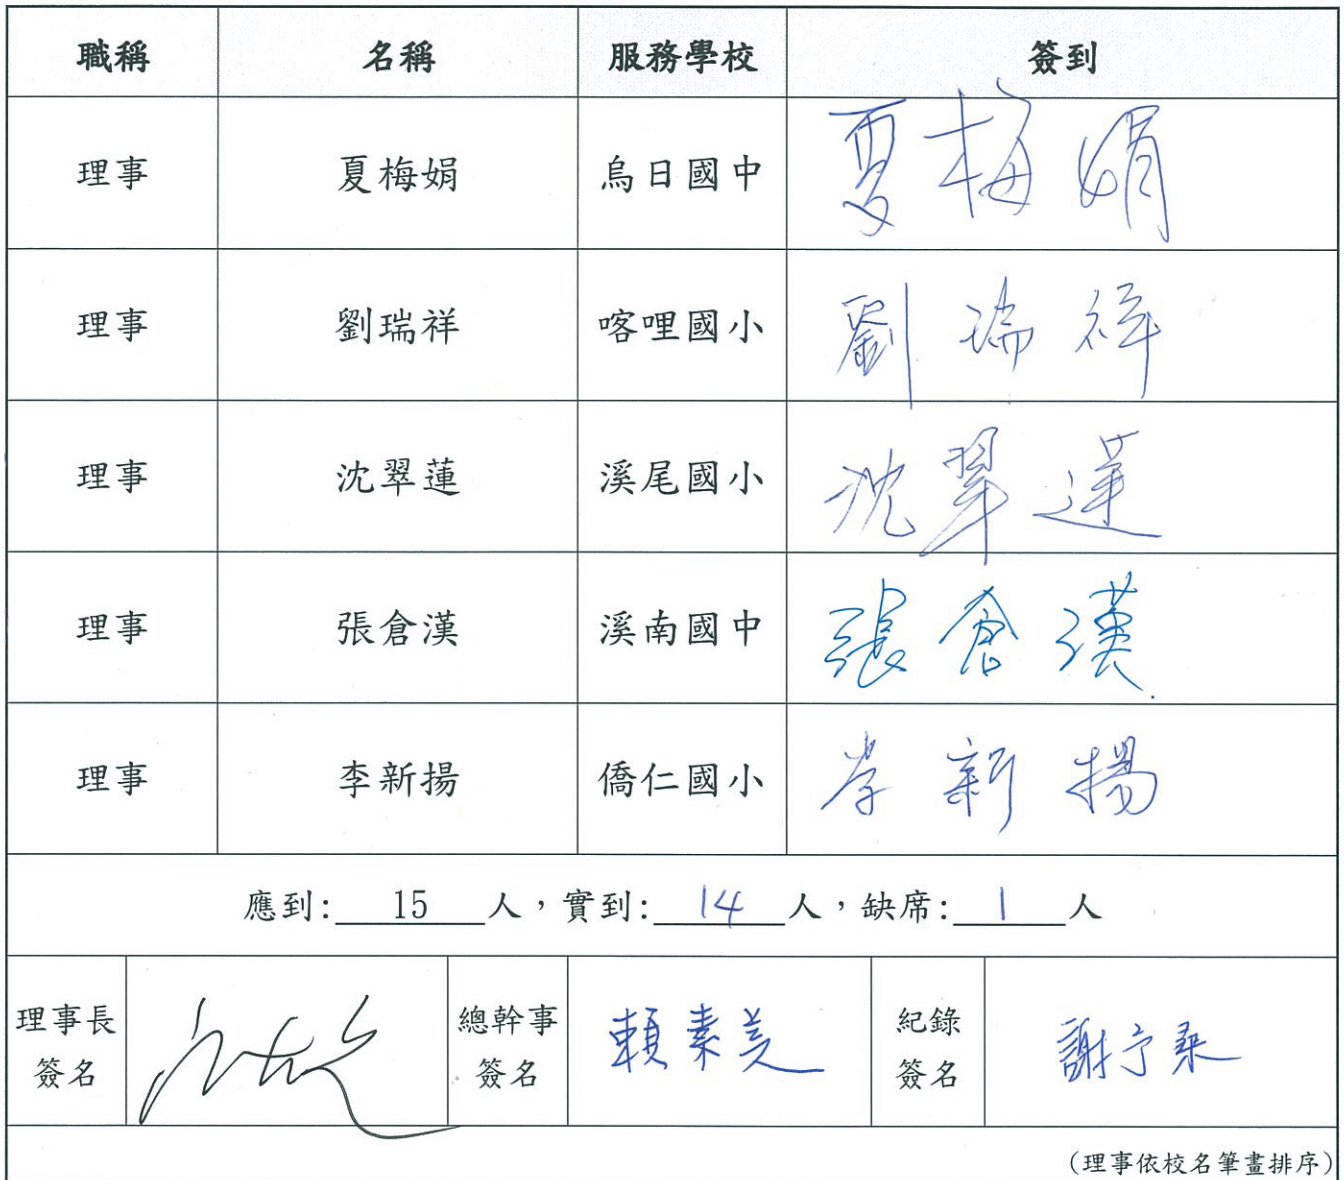 職稱 名稱 服務學校 簽到
理事 夏梅娟 烏日國中 夏梅娟
理事 劉瑞祥 喀哩國小 劉瑞祥
理事 沈翠蓮 溪尾國小 沈翠蓮
理事 張倉漢 溪南國中 張倉漢
理事 李新揚 僑仁國小 李新揚
應到: 15 人,實到: 14 人,缺席: 1 人
理事長 總幹事 賴素美 紀錄 謝
簽名 簽名 簽名
(理事依校名筆畫排序)